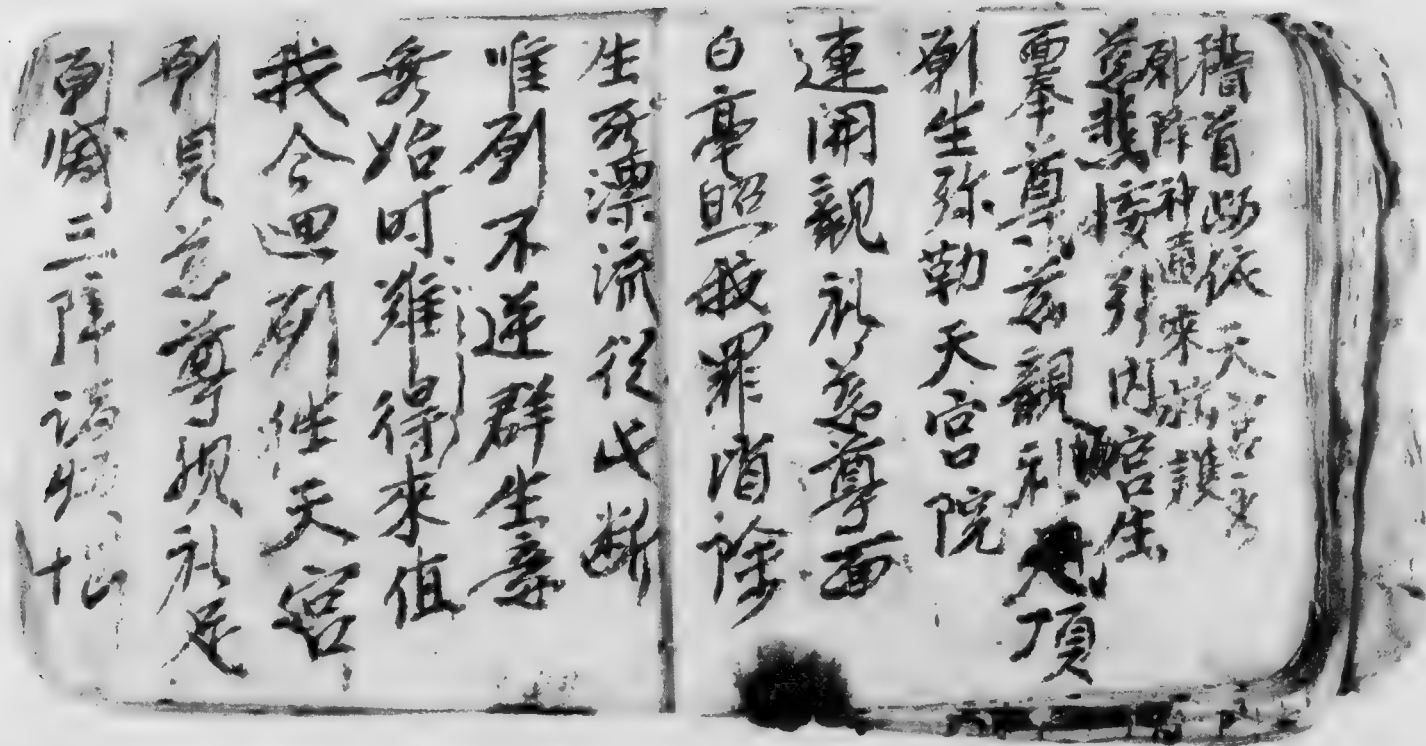 稽首皈依天
願降神通來救護
慈悲接引內宮生
面奉尊慈親礼 頂
願生弥勒天宮院
連開親礼慈尊面
白毫照我罪消除
生死漂流從此断
唯願不逆群生意
無始时難得來值
我今迴願往天宮
願見慈尊親礼足
願滅三障諸煩惱